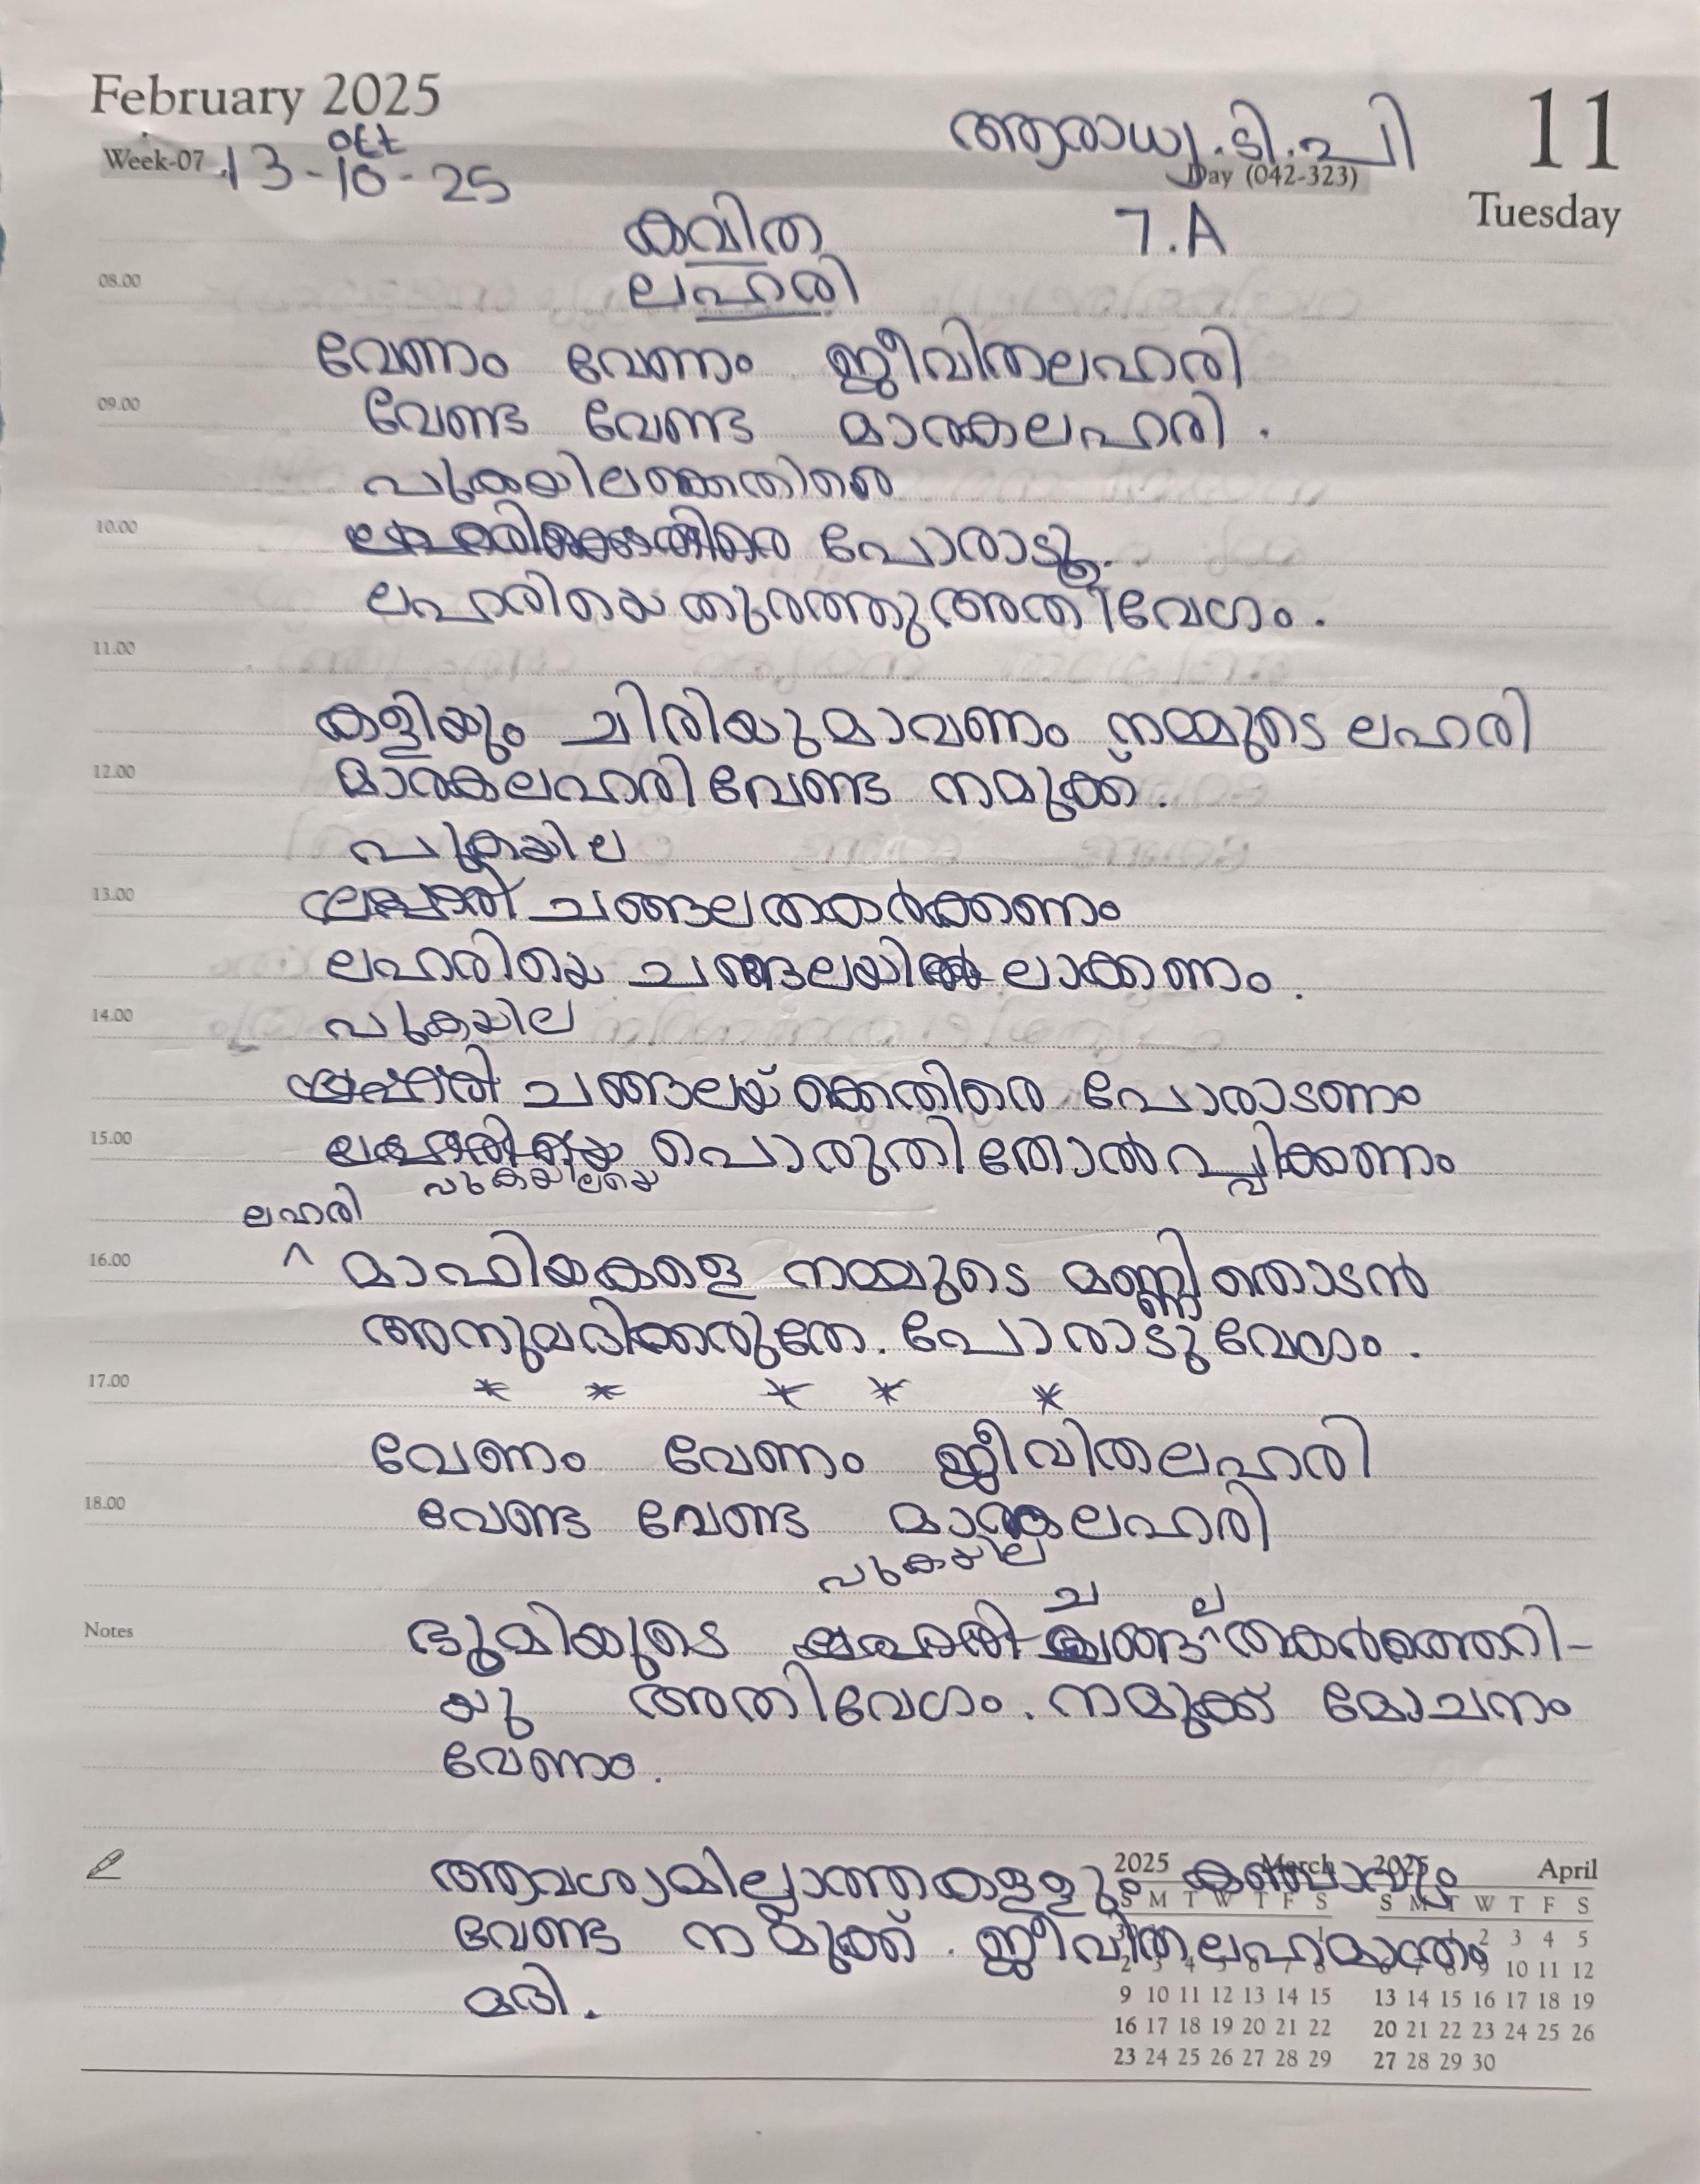 February 2025
11
Tuesday
Week-07
Day (042-323)
oct
13-10-25
ആരാധ്യ.ടി.പി
7.A
കവിത
ലഹരി
08.00
വേണം വേണം ജീവിതലഹരി
09.00
വേണ്ട വേണ്ട മാരകലഹരി.
പുകയിലക്കെതിരെ
10.00
പോരാടൂ.
ലഹരിയെ തുരത്തു അതിവേഗം.
11.00
കളിയും ചിരിയുമാവണം നമ്മുടെ ലഹരി
12.00
മാരകലഹരി വേണ്ട നമുക്ക്.
പുകയില
13.00
ചങ്ങല തകർക്കണം
ലഹരിയെ ചങ്ങലയിലാക്കണം.
14.00
പുകയില
ചങ്ങലയ്ക്കെതിരെ പോരാടണം
15.00
പൊരുതി തോൽപ്പിക്കണം
പുകയിലയെ
ലഹരി
16.00
^ മാഫിയകളെ നമ്മുടെ മണ്ണിതൊടൻ
അനുവദിക്കരുതേ. പോരാടു വേഗം.
17.00
* * * * *
വേണം വേണം ജീവിതലഹരി
18.00
വേണ്ട വേണ്ട മാരകലഹരി
പുകയില
Notes
ഭൂമിയുടെ ചങ്ങല തകർത്തെറി-
യു അതിവേഗം. നമുക്ക് മോചനം
വേണം.
ആവശ്യമില്ലാത്തകളളും കഞ്ചാവും
വേണ്ട നമുക്ക്. ജീവിതലഹരമാത്രം
മതി.
2025 March
S M T W T F S
1
2 3 4 5 6 7 8
9 10 11 12 13 14 15
16 17 18 19 20 21 22
23 24 25 26 27 28 29
2025 April
S M T W T F S
1 2 3 4 5
6 7 8 9 10 11 12
13 14 15 16 17 18 19
20 21 22 23 24 25 26
27 28 29 30